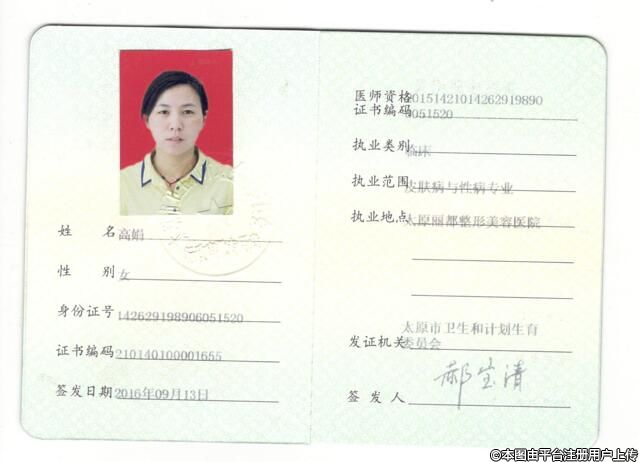 姓 名 高娟
性 别 女
身份证号 142629198906051520
证书编码 210140100001655
签发日期 2016年09月13日
医师资格 20151421014262919890
证书编码 6051520
执业类别 临床
执业范围 皮肤病与性病专业
执业地点 太原丽都整形美容医院
太原市卫生和计划生育
发证机关 委员会
签 发 人 郝宝清
©本图由平台注册用户上传